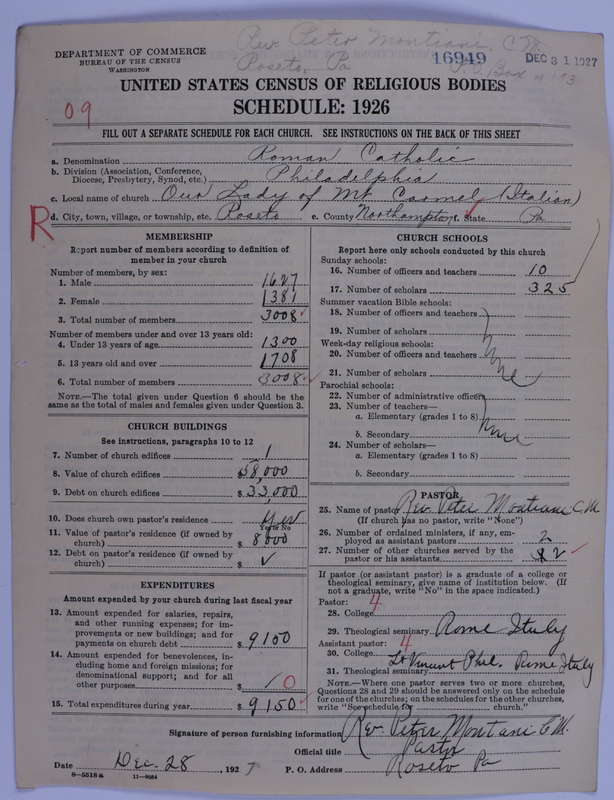 DEPARTMENT OF COMMERCE
BUREAU OF THE CENSUS
WASHINGTON
Rev. Peter Montiani, C.M.
Roseto, Pa
P.O. Box
16949
DEC 31 1927
UNITED STATES CENSUS OF RELIGIOUS BODIES
SCHEDULE: 1926
09
FILL OUT A SEPARATE SCHEDULE FOR EACH CHURCH. SEE INSTRUCTIONS ON THE BACK OF THIS SHEET
a. Denomination Roman Catholic
b. Division (Association, Conference, Diocese, Presbytery, Synod, etc.) Philadelphia
c. Local name of church Our Lady of Mt Carmel (Italian)
R
d. City, town, village, or township, etc. Roseto e. County Northampton f. State Pa
MEMBERSHIP
Report number of members according to definition of
member in your church
Number of members, by sex:
1. Male 1627
2. Female 1381
3. Total number of members 3008
Number of members under and over 13 years old:
4. Under 13 years of age 1300
5. 13 years old and over 1708
6. Total number of members 3008
NOTE.—The total given under Question 6 should be
the same as the total of males and females given under Question 3.
CHURCH BUILDINGS
See instructions, paragraphs 10 to 12
7. Number of church edifices 1
8. Value of church edifices $58,000
9. Debt on church edifices $33,000
10. Does church own pastor's residence Yes
Yes or No
11. Value of pastor's residence (if owned by
church) $ 8000
12. Debt on pastor's residence (if owned by
church) $ ✓
EXPENDITURES
Amount expended by your church during last fiscal year
13. Amount expended for salaries, repairs,
and other running expenses; for im-
provements or new buildings; and for
payments on church debt $ 9150
14. Amount expended for benevolences, in-
cluding home and foreign missions; for
denominational support; and for all
other purposes $ 0
15. Total expenditures during year $ 9150
CHURCH SCHOOLS
Report here only schools conducted by this church
Sunday schools:
16. Number of officers and teachers 10
17. Number of scholars 325
Summer vacation Bible schools:
18. Number of officers and teachers
19. Number of scholars
Week-day religious schools:
20. Number of officers and teachers
21. Number of scholars
None
Parochial schools:
22. Number of administrative officers
23. Number of teachers—
a. Elementary (grades 1 to 8)
b. Secondary
None
24. Number of scholars—
a. Elementary (grades 1 to 8)
b. Secondary
PASTOR
25. Name of pastor Rev. Peter Montiani C.M.
(If church has no pastor, write "None")
26. Number of ordained ministers, if any, em-
ployed as assistant pastors 2
27. Number of other churches served by the
pastor or his assistants 2
If pastor (or assistant pastor) is a graduate of a college or
theological seminary, give name of institution below. (If
not a graduate, write "No" in the space indicated.)
Pastor: 4
28. College
29. Theological seminary Rome Italy
Assistant pastor: 4
30. College
St Vincent Phil. Rome Italy
31. Theological seminary
NOTE.—Where one pastor serves two or more churches,
Questions 28 and 29 should be answered only on the schedule
for one of the churches; on the schedules for the other churches,
write "See schedule for church."
Signature of person furnishing information Rev. Peter Montiani C.M.
Official title Pastor
Date Dec. 28, 1927 P. O. Address Roseto Pa
8—5518a 11—9084